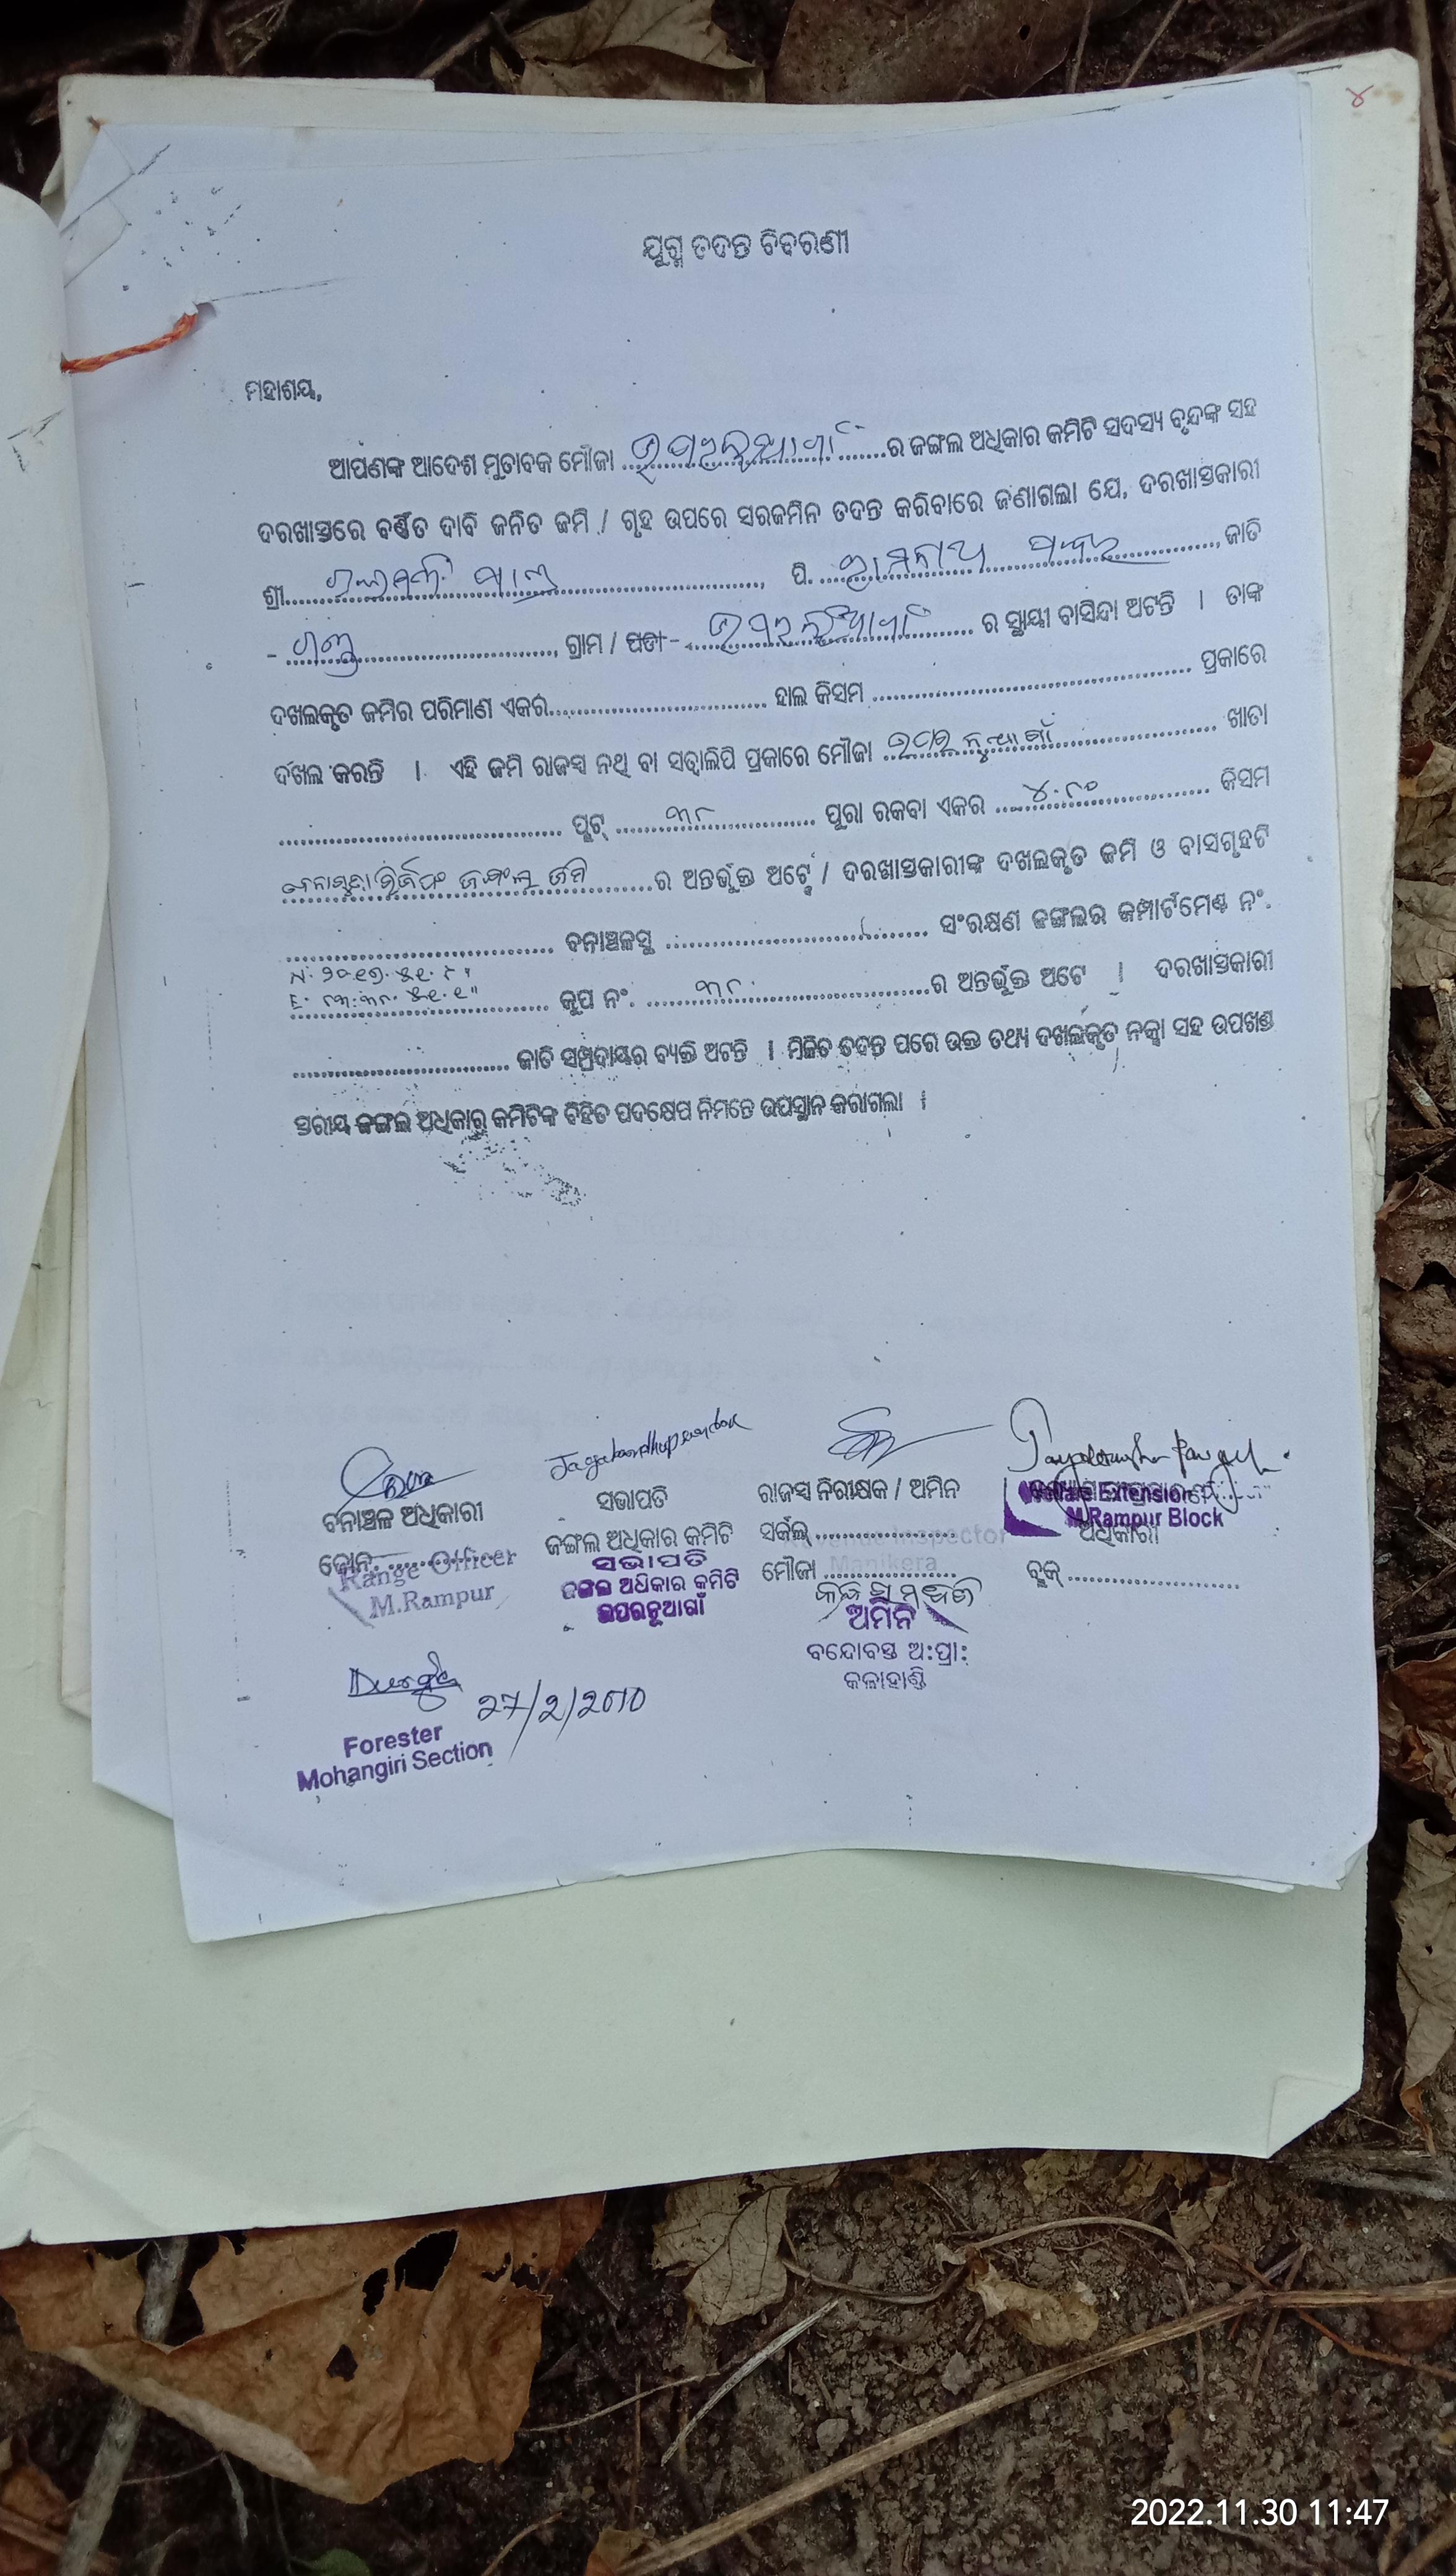 ୪
ଯୁଗ୍ମ ତଦନ୍ତ ବିବରଣୀ
ମହାଶୟ,
ଆପଣଙ୍କ ଆଦେଶ ମୁତାବକ ମୌଜା ଉପରନୁଆଗାଁ ର ଜଙ୍ଗଲ ଅଧିକାର କମିଟି ସଦସ୍ୟ ବୃନ୍ଦଙ୍କ ସହ
ଦରଖାସ୍ତରେ ବର୍ଣ୍ଣିତ ଦାବି ଜନିତ ଜମି / ଗୃହ ଉପରେ ସରଜମିନ ତଦନ୍ତ କରିବାରେ ଜଣାଗଲା ଯେ, ଦରଖାସ୍ତକାରୀ
ଶ୍ରୀ.............................., ପି. ..............................., ଜାତି
- ............................, ଗ୍ରାମ / ପଡା - ଉପରନୁଆଗାଁ ର ସ୍ଥାୟୀ ବାସିନ୍ଦା ଅଟନ୍ତି । ତାଙ୍କ
ଦଖଲକୃତ ଜମିର ପରିମାଣ ଏକର............................ ହାଲ କିସମ ............................ ପ୍ରକାରେ
ଦଖଲ କରନ୍ତି । ଏହି ଜମି ରାଜସ୍ୱ ନଥି ବା ସତ୍ୱାଲିପି ପ୍ରକାରେ ମୌଜା ଉପର ନୁଆଗାଁ ଖାତା
............................ ପ୍ଲଟ୍ ୩୮ ପୁରା ରକବା ଏକର ୪.୮୦ କିସମ
ଜଙ୍ଗଲ ଜମି ର ଅନ୍ତର୍ଭୁକ୍ତ ଅଟେ / ଦରଖାସ୍ତକାରୀଙ୍କ ଦଖଲକୃତ ଜମି ଓ ବାସଗୃହଟି
............................ ବନାଞ୍ଚଳସ୍ଥ ............................ ସଂରକ୍ଷଣ ଜଙ୍ଗଲର କମ୍ପାର୍ଟମେଣ୍ଟ ନଂ.
............................ କୁପ ନଂ. ୩୮ ର ଅନ୍ତର୍ଭୁକ୍ତ ଅଟେ । ଦରଖାସ୍ତକାରୀ
............................ ଜାତି ସମ୍ପ୍ରଦାୟର ବ୍ୟକ୍ତି ଅଟନ୍ତି । ମିଳିତ ତଦନ୍ତ ପରେ ଉକ୍ତ ତଥ୍ୟ ଦଖଲକୃତ ନକ୍ସା ସହ ଉପଖଣ୍ଡ
ସ୍ତରୀୟ ଜଙ୍ଗଲ ଅଧିକାର କମିଟିଙ୍କ ବିହିତ ପଦକ୍ଷେପ ନିମନ୍ତେ ଉପସ୍ଥାନ କରାଗଲା ।
ବନାଞ୍ଚଳ ଅଧିକାରୀ
ଜୋନ୍.
Range Officer
M.Rampur
ସଭାପତି
ଜଙ୍ଗଲ ଅଧିକାର କମିଟି
ସଭାପତି
ଜଙ୍ଗଲ ଅଧିକାର କମିଟି
ଉପରନୁଆଗାଁ
ରାଜସ୍ୱ ନିରୀକ୍ଷକ / ଅମିନ
ସର୍କଲ୍ ............................
Revenue Inspector
Manikera
ମୌଜା ............................
ଅମିନ
ବନ୍ଦୋବସ୍ତ ଅ:ପ୍ରା:
କଳାହାଣ୍ଡି
Extension
M.Rampur Block
ଅଧିକାରୀ
ବ୍ଲକ୍ ............................
27/2/2010
Forester
Mohangiri Section
2022.11.30 11:47